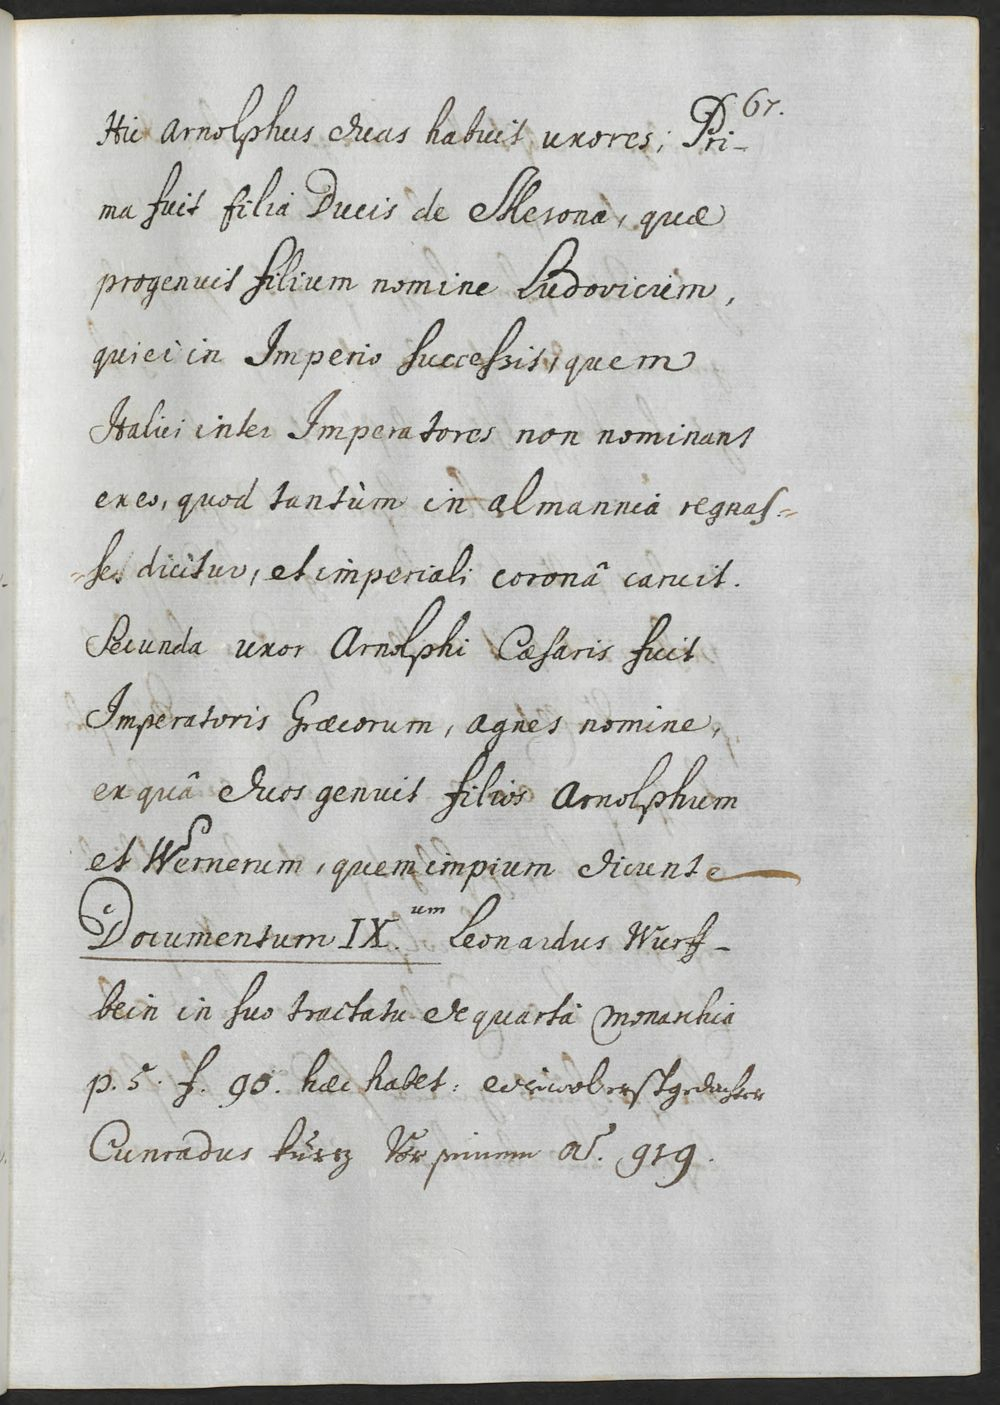 67.
Hic Arnolphus duas habuit uxores; Pri-
ma fuit filia Ducis de Merona, quæ
progenuit filium nomine Ludovicum,
qui ei in Imperio successit, quem
Italici inter Imperatores non nominant
ex eo, quod tantùm in Almannia regnas=
=se dicitur, et imperiali coronâ caruit.
Secunda uxor Arnolphi Cæsaris fuit
Imperatoris Græcorum, Agnes nomine,
ex quâ duos genuit filios Arnolphum
et Wernerum, quem impium dicunt
Documentum IX.um Leonardus Wurff-
bein in suo tractatu de quarta Monarchia
p. 5. f. 90. hæc habet: erstgedachter
Cunradus kurz Vor seinem Aō. 919.